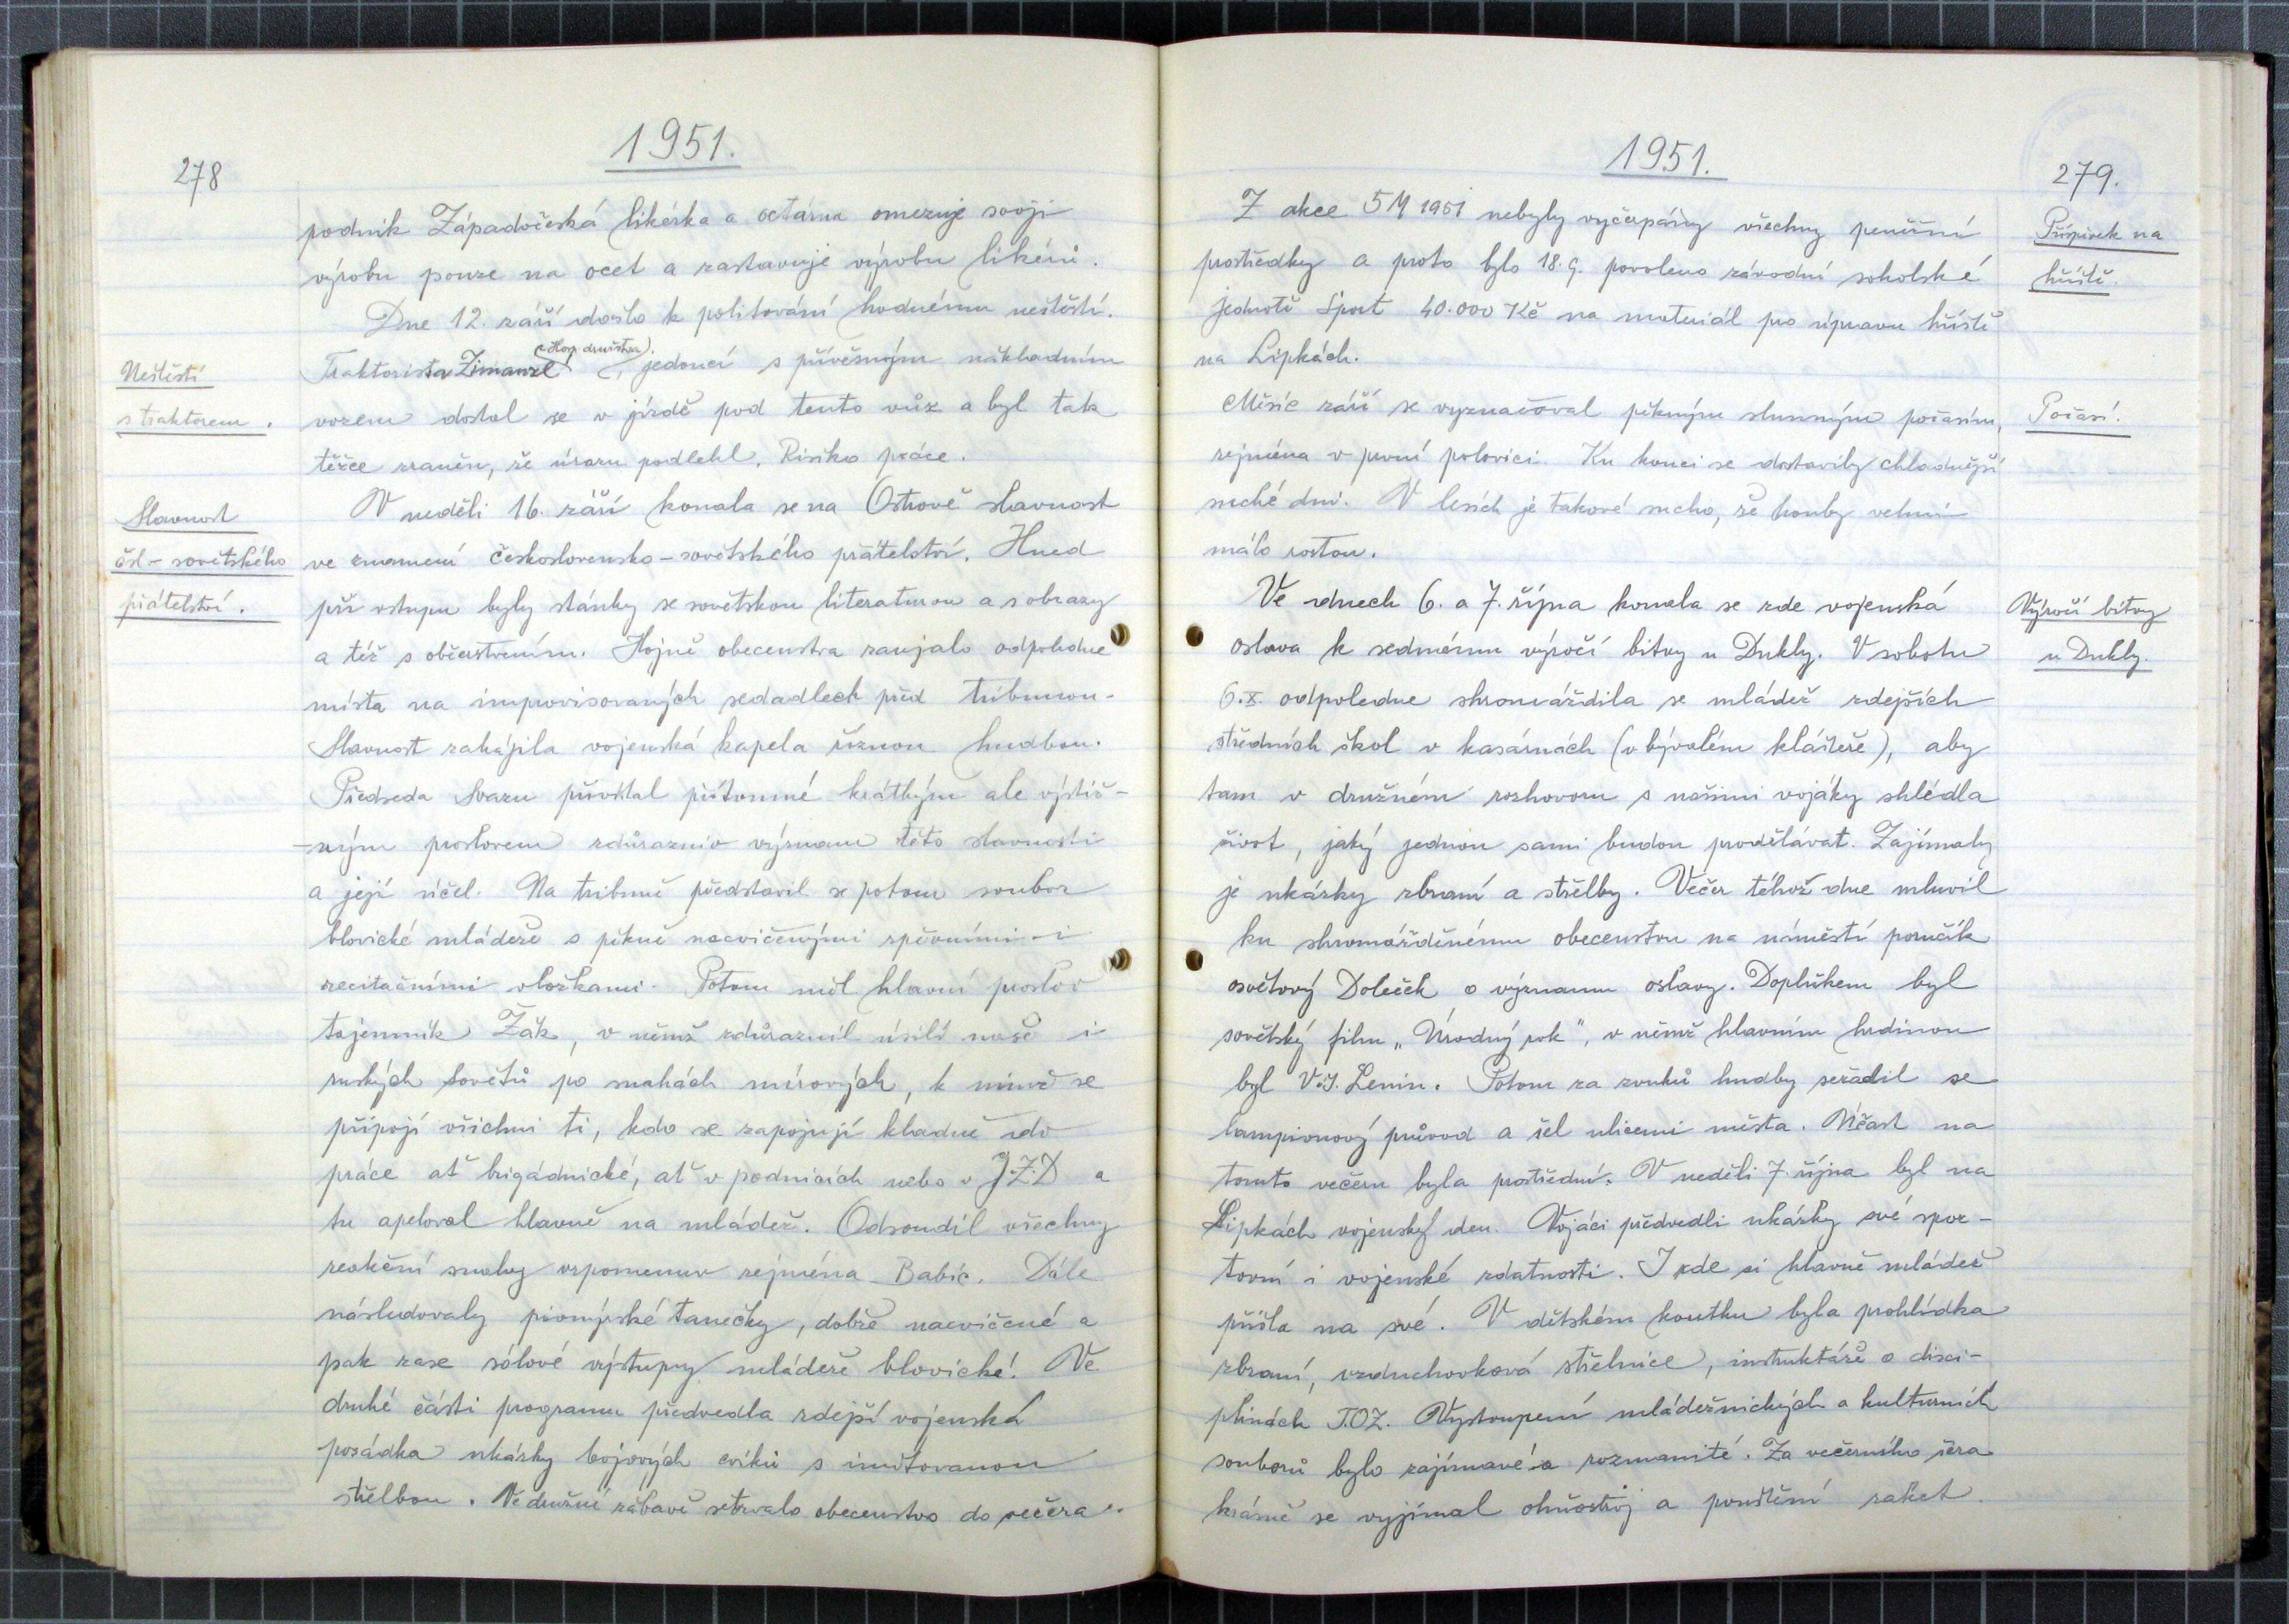 278
1951.
podnik Západočeská likérka a octárna omezuje svoji
výrobu pouze na ocet a zastavuje výrobu likérů.
Dne 12. září došlo k politování hodnému neštěstí.
(Hosp. družstva).
Neštěstí
Traktorista Zimanzl, jedoucí s přívěsným nákladním
s traktorem.
vozem dostal se v jízdě pod tento vůz a byl tak
těžce zraněn, že úrazu podlehl. Risiko práce.
Slavnost
V neděli 16. září konala se na Ostrově slavnost
čsl-sovětského
ve znamení československo-sovětského přátelství. Hned
přátelství.
při vstupu byly stánky se sovětskou literaturou a s obrazy
a též s občerstvením. Hojně obecenstva zaujalo odpoledne
místa na improvisovaných sedadlech před tribunou.
Slavnost zahájila vojenská kapela říznou hudbou.
Předseda Svazu přivítal přítomné krátkým ale výstiž-
-ným proslovem zdůrazniv význam této slavnosti
a její účel. Na tribuně představil se potom soubor
blovické mládeže s pěkně nacvičenými zpěvními i
recitačními vložkami. Potom měl hlavní proslov
tajemník Žák, v němž zdůraznil úsilí naše i
ruských sovětů po snahách mírových, k nimž se
připojí všichni ti, kdo se zapojují kladně do
práce ať brigádnické, ať v podnicích nebo v J.Z.D a
tu apeloval hlavně na mládež. Odsoudil všechny
reakční snahy vzpomenuv zejména Babic. Dále
následovaly pionýrské tanečky, dobře nacvičené a
pak zase sólové výstupy mládeže blovické. Ve
druhé části programu předvedla zdejší vojenská
posádka ukázky bojových cviků s imitovanou
střelbou. Ve družné zábavě setrvalo obecenstvo do večera.
1951.
279.
Z akce 5M 1951 nebyly vyčerpány všechny peněžní
Příspěvek na
prostředky a proto bylo 18.9. povoleno závodní sokolské
hřiště.
jednotě Sport 40.000 Kč na materiál pro úpravu hřiště
na Lipkách.
Měsíc září se vyznačoval pěkným slunným počasím,
Počasí.
zejména v první polovici. Ku konci se dostavily chladnější
suché dni. V lesích je takové sucho, že houby velmi
málo rostou.
Ve dnech 6. a 7. října konala se zde vojenská
Výročí bitvy
oslava k sedmému výročí bitvy u Dukly. V sobotu
u Dukly.
6.X. odpoledne shromáždila se mládež zdejších
středních škol v kasárnách (v bývalém klášteře), aby
tam v družném rozhovoru s našimi vojáky shlédla
život, jaký jednou sami budou prodělávat. Zajímaly
je ukázky zbraní a střelby. Večer téhož dne mluvil
ku shromážděnému obecenstvu na náměstí poručík
osvětový Doleček o významu oslavy. Doplňkem byl
sovětský film „Úrodný rok", v němž hlavním hrdinou
byl V.I. Lenin. Potom za zvuků hudby seřadil se
lampionový průvod a šel ulicemi města. Účast na
tomto večeru byla prostřední. V neděli 7. října byl na
Lipkách vojenský den. Vojáci předvedli ukázky své spor-
tovní i vojenské zdatnosti. I zde si hlavně mládež
přišla na své. V dětském koutku byla prohlídka
zbraní, vzduchovková střelnice, instruktáže o disci-
plinách T.O.Z. Vystoupení mládežnických a kulturních
souborů bylo zajímavé a rozmanité. Za večerního šera
krásně se vyjímal ohňostroj a pouštění raket.